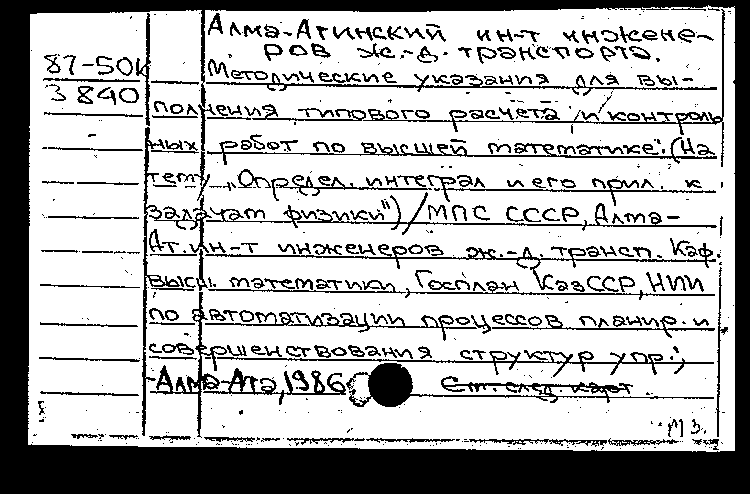 Алма-Атинский ин-т инжене-
ров ж.-д. транспорта.
87-50к
Методические указания для вы-
3840
полнения типового расчета и контроль
ных работ по высшей математике: (На
тему „Определ. интеграл и его прил. к
задачам физики") / МПС СССР, Алма-
Ат. ин-т инженеров ж.-д. трансп. Каф.
высш. математики, Госплан КазССР, НИИ
по автоматизации процессов планир. и
совершенствования структур упр.;
-Алма-Ата, 1986
См. след. карт
М 3.